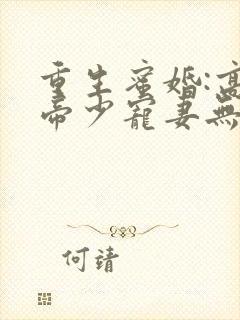 重生蜜婚:高
帝少寵妻無
何靖